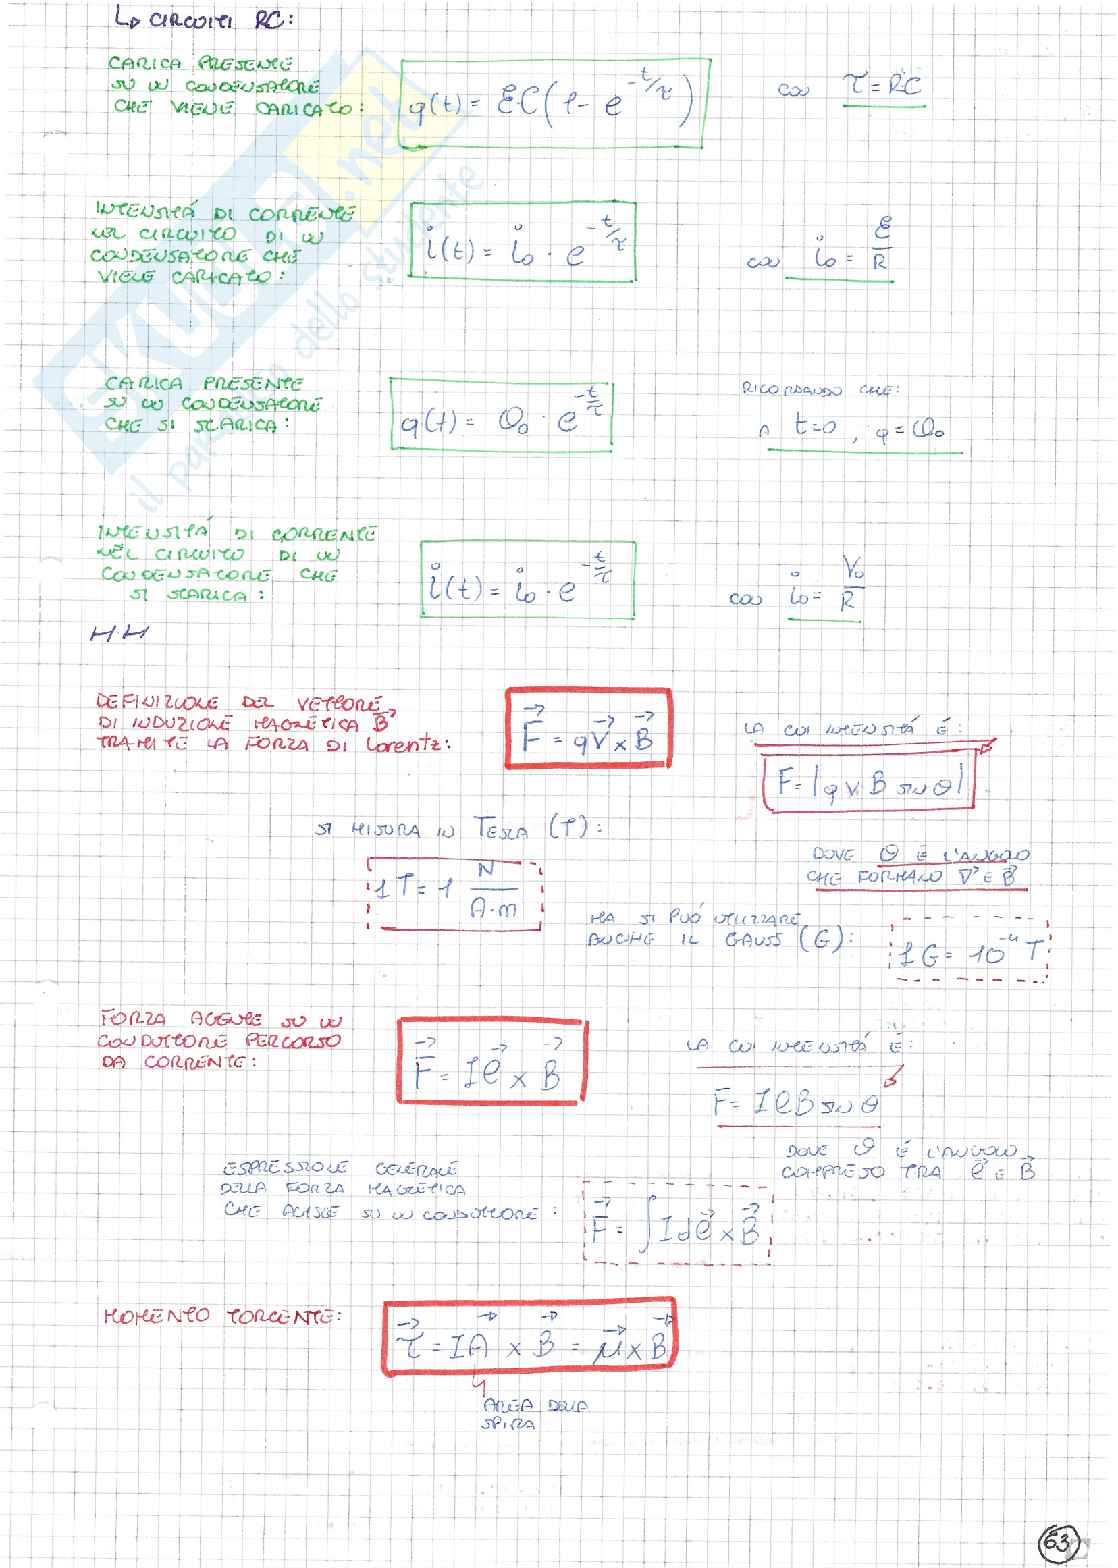 ↳ CIRCUITI RC:
CARICA PRESENTE
SU UN CONDENSATORE
CHE VIENE CARICATO:
q(t) = ℰC(1 - e^{-t/τ})
CON τ = RC
INTENSITÁ DI CORRENTE
NEL CIRCUITO DI UN
CONDENSATORE CHE
VIENE CARICATO:
i(t) = i₀ · e^{-t/τ}
CON i₀ = ℰ/R
CARICA PRESENTE
SU UN CONDENSATORE
CHE SI SCARICA:
q(t) = Q₀ · e^{-t/τ}
RICORDANDO CHE:
A t=0, q=Q₀
INTENSITÁ DI CORRENTE
NEL CIRCUITO DI UN
CONDENSATORE CHE
SI SCARICA:
i(t) = i₀ · e^{-t/τ}
CON i₀ = V₀/R
DEFINIZIONE DEL VETTORE
DI INDUZIONE MAGNETICA B⃗
TRAMITE LA FORZA DI Lorentz:
F⃗ = qV⃗ × B⃗
LA CUI INTENSITÁ É:
F = |q v B sin θ|
DOVE θ È L'ANGOLO
CHE FORMANO V⃗ E B⃗
SI MISURA IN TESLA (T):
1 T = 1 N/(A·m)
MA SI PUÓ UTILIZZARE
ANCHE IL GAUSS (G):
1 G = 10⁻⁴ T
FORZA AGENTE SU UN
CONDUTTORE PERCORSO
DA CORRENTE:
F⃗ = Iℓ⃗ × B⃗
LA CUI INTENSITÁ É:
F = IℓB sin θ
DOVE θ É L'ANGOLO
COMPRESO TRA ℓ⃗ E B⃗
ESPRESSIONE GENERALE
DELLA FORZA MAGNETICA
CHE AGISCE SU UN CONDUTTORE:
F⃗ = ∫ I dℓ⃗ × B⃗
MOMENTO TORCENTE:
τ⃗ = IA⃗ × B⃗ = μ⃗ × B⃗
AREA DELLA
SPIRA
63
SKUOLA.net
il paradiso dello studente